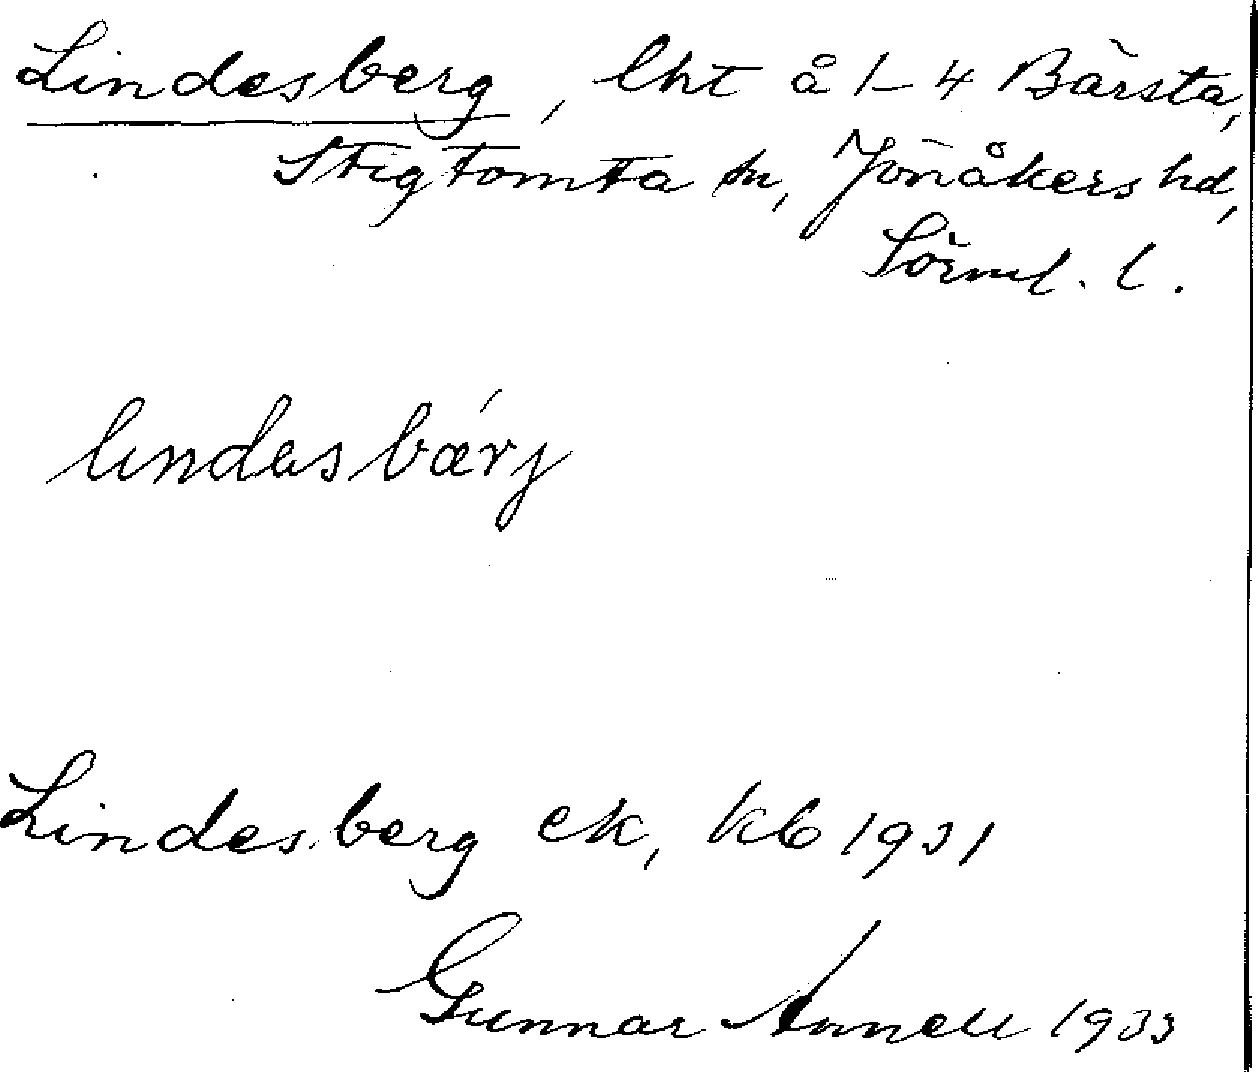 Lindesberg, lht å 1-4 Bärsta,
Stigtomta sn, Jönåkers hd,
Sörml. l.
lındəsbærj
Lindesberg ek, kb 1931
Gunnar Annell 1933